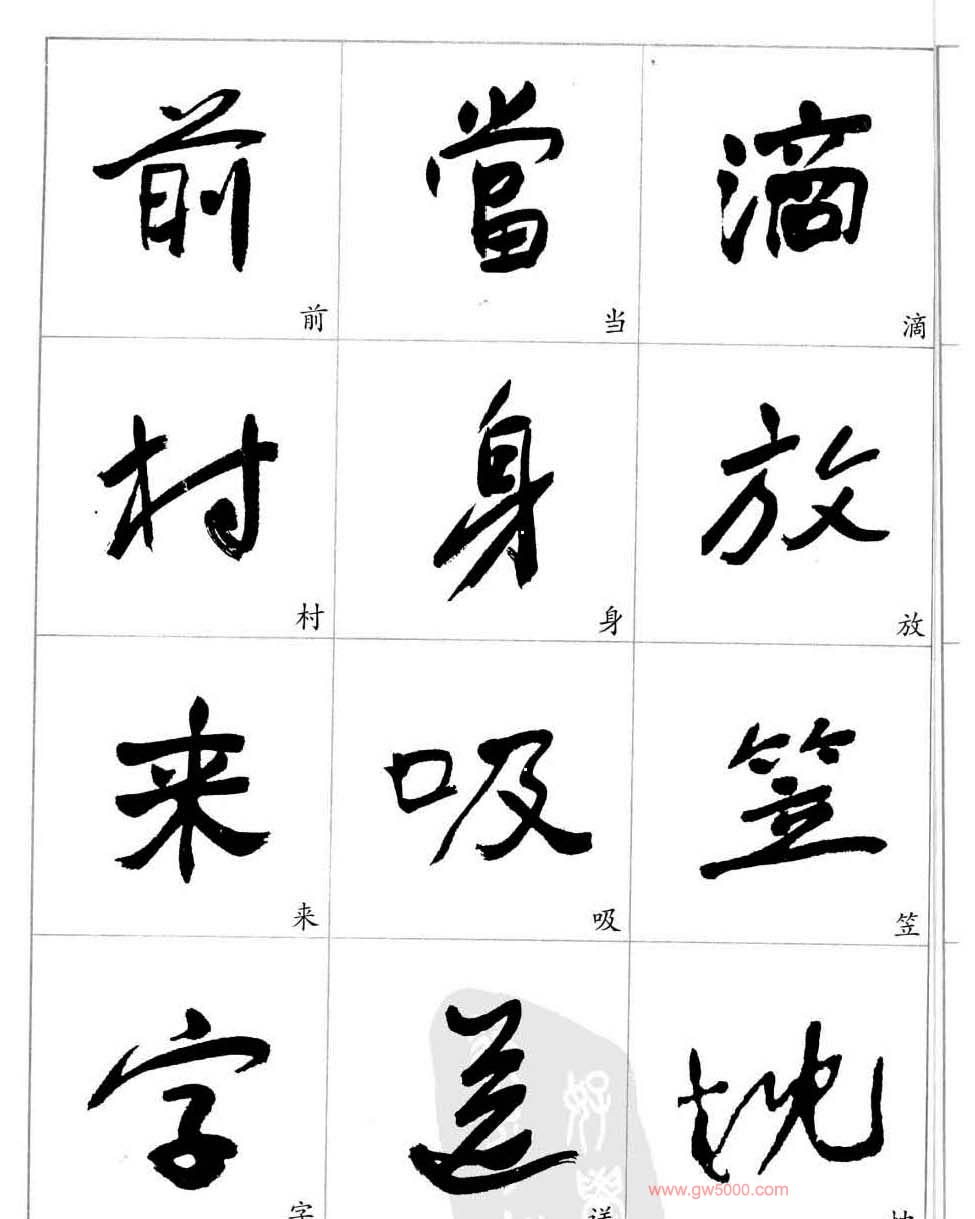 前 當 滴
前 当 滴
村 身 放
村 身 放
来 吸 笠
来 吸 笠
字 送
字 送
www.gw5000.com